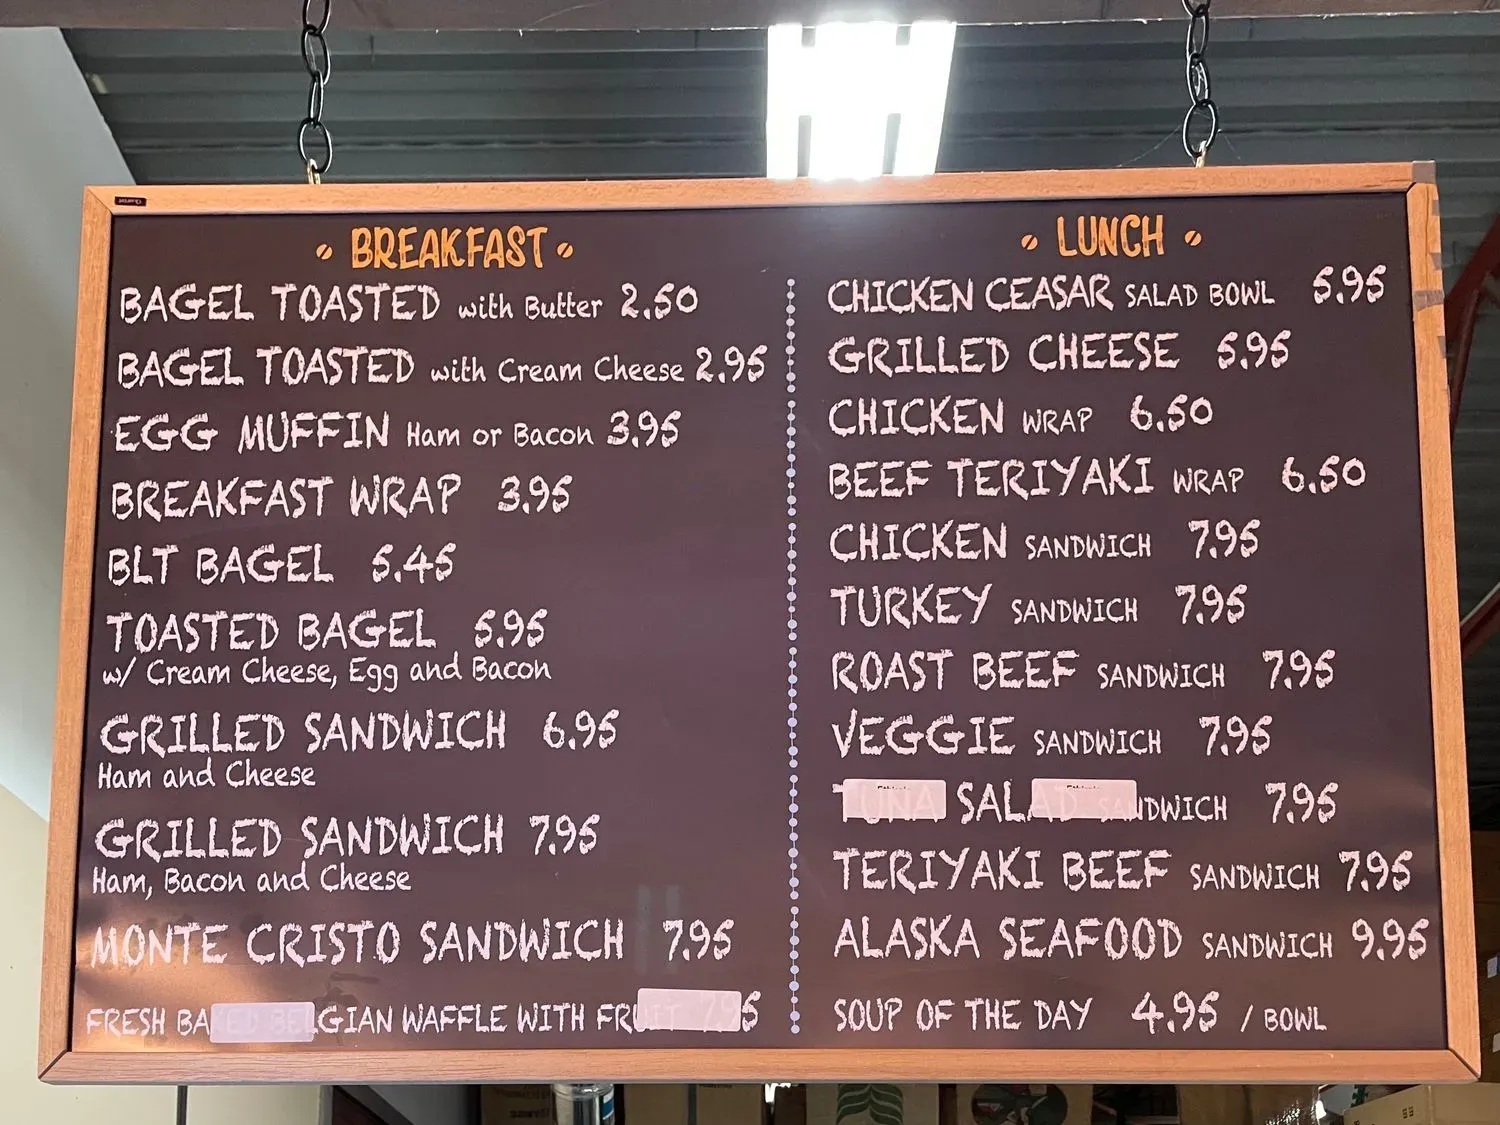 BREAKFAST
BAGEL TOASTED with Butter 2.50
BAGEL TOASTED with Cream Cheese 2.95
EGG MUFFIN Ham or Bacon 3.95
BREAKFAST WRAP 3.95
BLT BAGEL 5.45
TOASTED BAGEL 5.95
w/ Cream Cheese, Egg and Bacon
GRILLED SANDWICH 6.95
Ham and Cheese
GRILLED SANDWICH 7.95
Ham, Bacon and Cheese
MONTE CRISTO SANDWICH 7.95
FRESH BAKED BELGIAN WAFFLE WITH FRUIT 7.95
LUNCH
CHICKEN CEASAR SALAD BOWL 5.95
GRILLED CHEESE 5.95
CHICKEN WRAP 6.50
BEEF TERIYAKI WRAP 6.50
CHICKEN SANDWICH 7.95
TURKEY SANDWICH 7.95
ROAST BEEF SANDWICH 7.95
VEGGIE SANDWICH 7.95
TUNA SALAD SANDWICH 7.95
TERIYAKI BEEF SANDWICH 7.95
ALASKA SEAFOOD SANDWICH 9.95
SOUP OF THE DAY 4.95 / BOWL